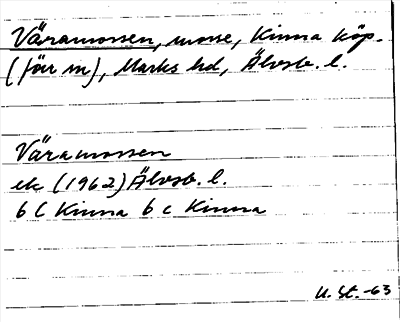 Väramossen, mosse, Kinna köp.
(för m), Marks hd, Älvsb. l.
Väramossen
ek (1962) Älvsb. l.
6 C Kinna 6 c Kinna
U. St. -63